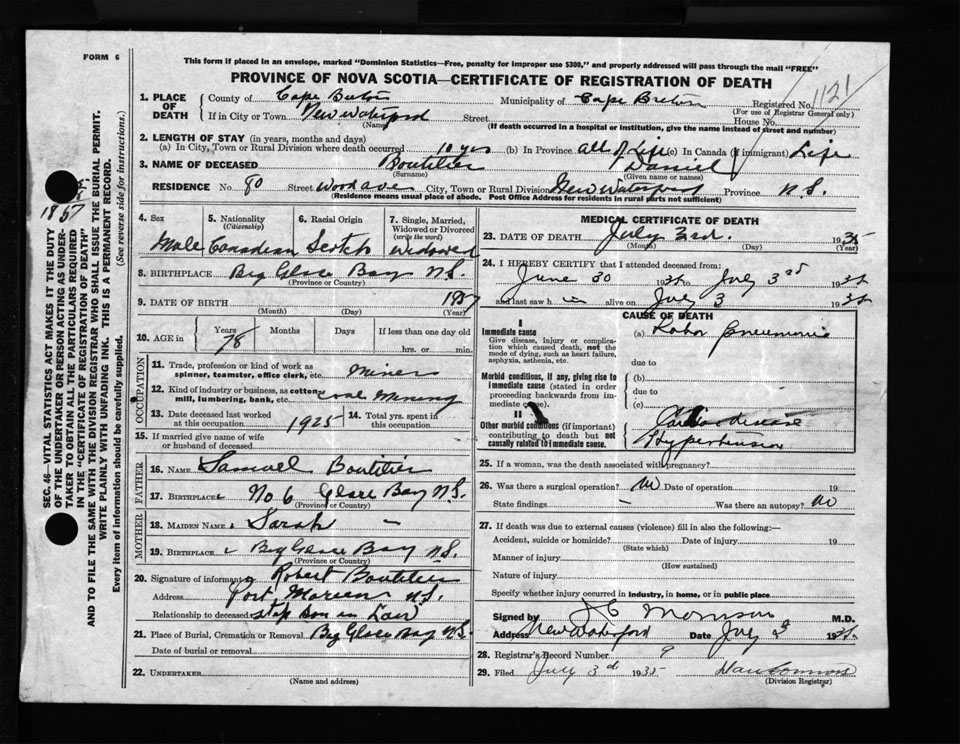 FORM 6
This form if placed in an envelope, marked "Dominion Statistics—Free, penalty for improper use $300," and properly addressed will pass through the mail "FREE"
PROVINCE OF NOVA SCOTIA—CERTIFICATE OF REGISTRATION OF DEATH
1121
SEC. 46—VITAL STATISTICS ACT MAKES IT THE DUTY
OF THE UNDERTAKER OR PERSON ACTING AS UNDER-
TAKER TO OBTAIN ALL THE PARTICULARS REQUIRED
IN THE "CERTIFICATE OF REGISTRATION OF DEATH"
AND TO FILE THE SAME WITH THE DIVISION REGISTRAR WHO SHALL ISSUE THE BURIAL PERMIT.
WRITE PLAINLY WITH UNFADING INK. THIS IS A PERMANENT RECORD.
Every item of information should be carefully supplied. (See reverse side for instructions.)
1857
1. PLACE OF DEATH County of Cape Breton Municipality of Cape Breton Registered No.
(For use of Registrar General only)
If in City or Town New Waterford Street House No.
(Name) (If death occurred in a hospital or institution, give the name instead of street and number)
2. LENGTH OF STAY (in years, months and days)
(a) In City, Town or Rural Division where death occurred 10 yrs (b) In Province all of Life (c) In Canada (if immigrant) Life
3. NAME OF DECEASED Boutilier Daniel
(Surname) (Given name or names)
RESIDENCE No. 80 Street Wood ave City, Town or Rural Division New Waterford Province N.S.
(Residence means usual place of abode. Post Office Address for residents in rural parts not sufficient)
4. Sex Male
5. Nationality (Citizenship) Canadian
6. Racial Origin Scotch
7. Single, Married, Widowed or Divorced (write the word) Widowed
8. BIRTHPLACE Big Glace Bay N.S.
(Province or Country)
9. DATE OF BIRTH 1857
(Month) (Day) (Year)
10. AGE in Years Months Days If less than one day old
78 hrs. or min.
OCCUPATION
11. Trade, profession or kind of work as spinner, teamster, office clerk, etc. Miner
12. Kind of industry or business, as cotton mill, lumbering, bank, etc. Coal Mining
13. Date deceased last worked at this occupation 1925
14. Total yrs. spent in this occupation
15. If married give name of wife or husband of deceased
FATHER
16. NAME Samuel Boutilier
17. BIRTHPLACE No 6 Glace Bay N.S.
(Province or Country)
MOTHER
18. MAIDEN NAME Sarah —
19. BIRTHPLACE Big Glace Bay N.S.
(Province or Country)
20. Signature of informant Robert Boutilier
Address Port Morien N.S.
Relationship to deceased step son in Law
21. Place of Burial, Cremation or Removal Big Glace Bay N.S.
Date of burial or removal
22. UNDERTAKER
(Name and address)
MEDICAL CERTIFICATE OF DEATH
23. DATE OF DEATH July 3rd. 1935
(Month) (Day) (Year)
24. I HEREBY CERTIFY that I attended deceased from:
June 30 1935 to July 3rd 1935
and last saw h im alive on July 3 1935
CAUSE OF DEATH
I
Immediate cause (a) Lobar Pneumonia
Give disease, injury or complication which caused death, not the mode of dying, such as heart failure, asphyxia, asthenia, etc.
due to
Morbid conditions, if any, giving rise to immediate cause (stated in order proceeding backwards from immediate cause). (b)
due to
(c)
II
Other morbid conditions (if important) contributing to death but not causally related to immediate cause.
Hypertension
25. If a woman, was the death associated with pregnancy?
26. Was there a surgical operation? No Date of operation 19
State findings — Was there an autopsy? No
27. If death was due to external causes (violence) fill in also the following:—
Accident, suicide or homicide? Date of injury 19
(State which)
Manner of injury
(How sustained)
Nature of injury
Specify whether injury occurred in industry, in home, or in public place
Signed by Morrison M.D.
Address New Waterford Date July 3 1935
28. Registrar's Record Number 9
29. Filed July 3rd 1935
(Division Registrar)